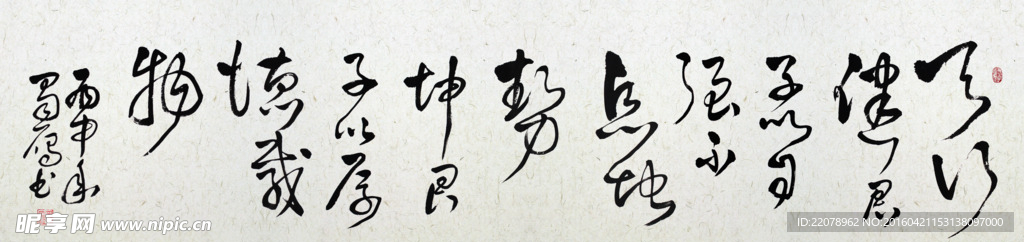 天行
健君
子以自
强不
息地
势
坤君
子以厚
德载
物
丙申年
蜀书
昵享网 www.nipic.cn
ID:22078962 NO:20160421153138097000